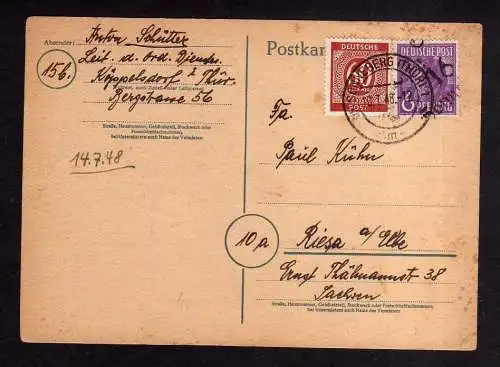 Absender: Anton Schütter
15b. Leit. d. ord. Dienstes
Köppelsdorf i/Thür.
Bergstrasse 56
Straße, Hausnummer, Gebäudeteil, Stockwerk oder
Postschließfachnummer,
bei Untermietern auch Name des Vermieters
14.7.48
Postkarte
DEUTSCHE
POST
DEUTSCHE POST
6 PFENNIG
16
Fa
Paul Kühn
10a
Riesa a/Elbe
Ernst Thälmannstr 38
Sachsen
Straße, Hausnummer, Gebäudeteil, Stockwerk oder Postschließfachnummer,
bei Untermietern auch Name des Vermieters